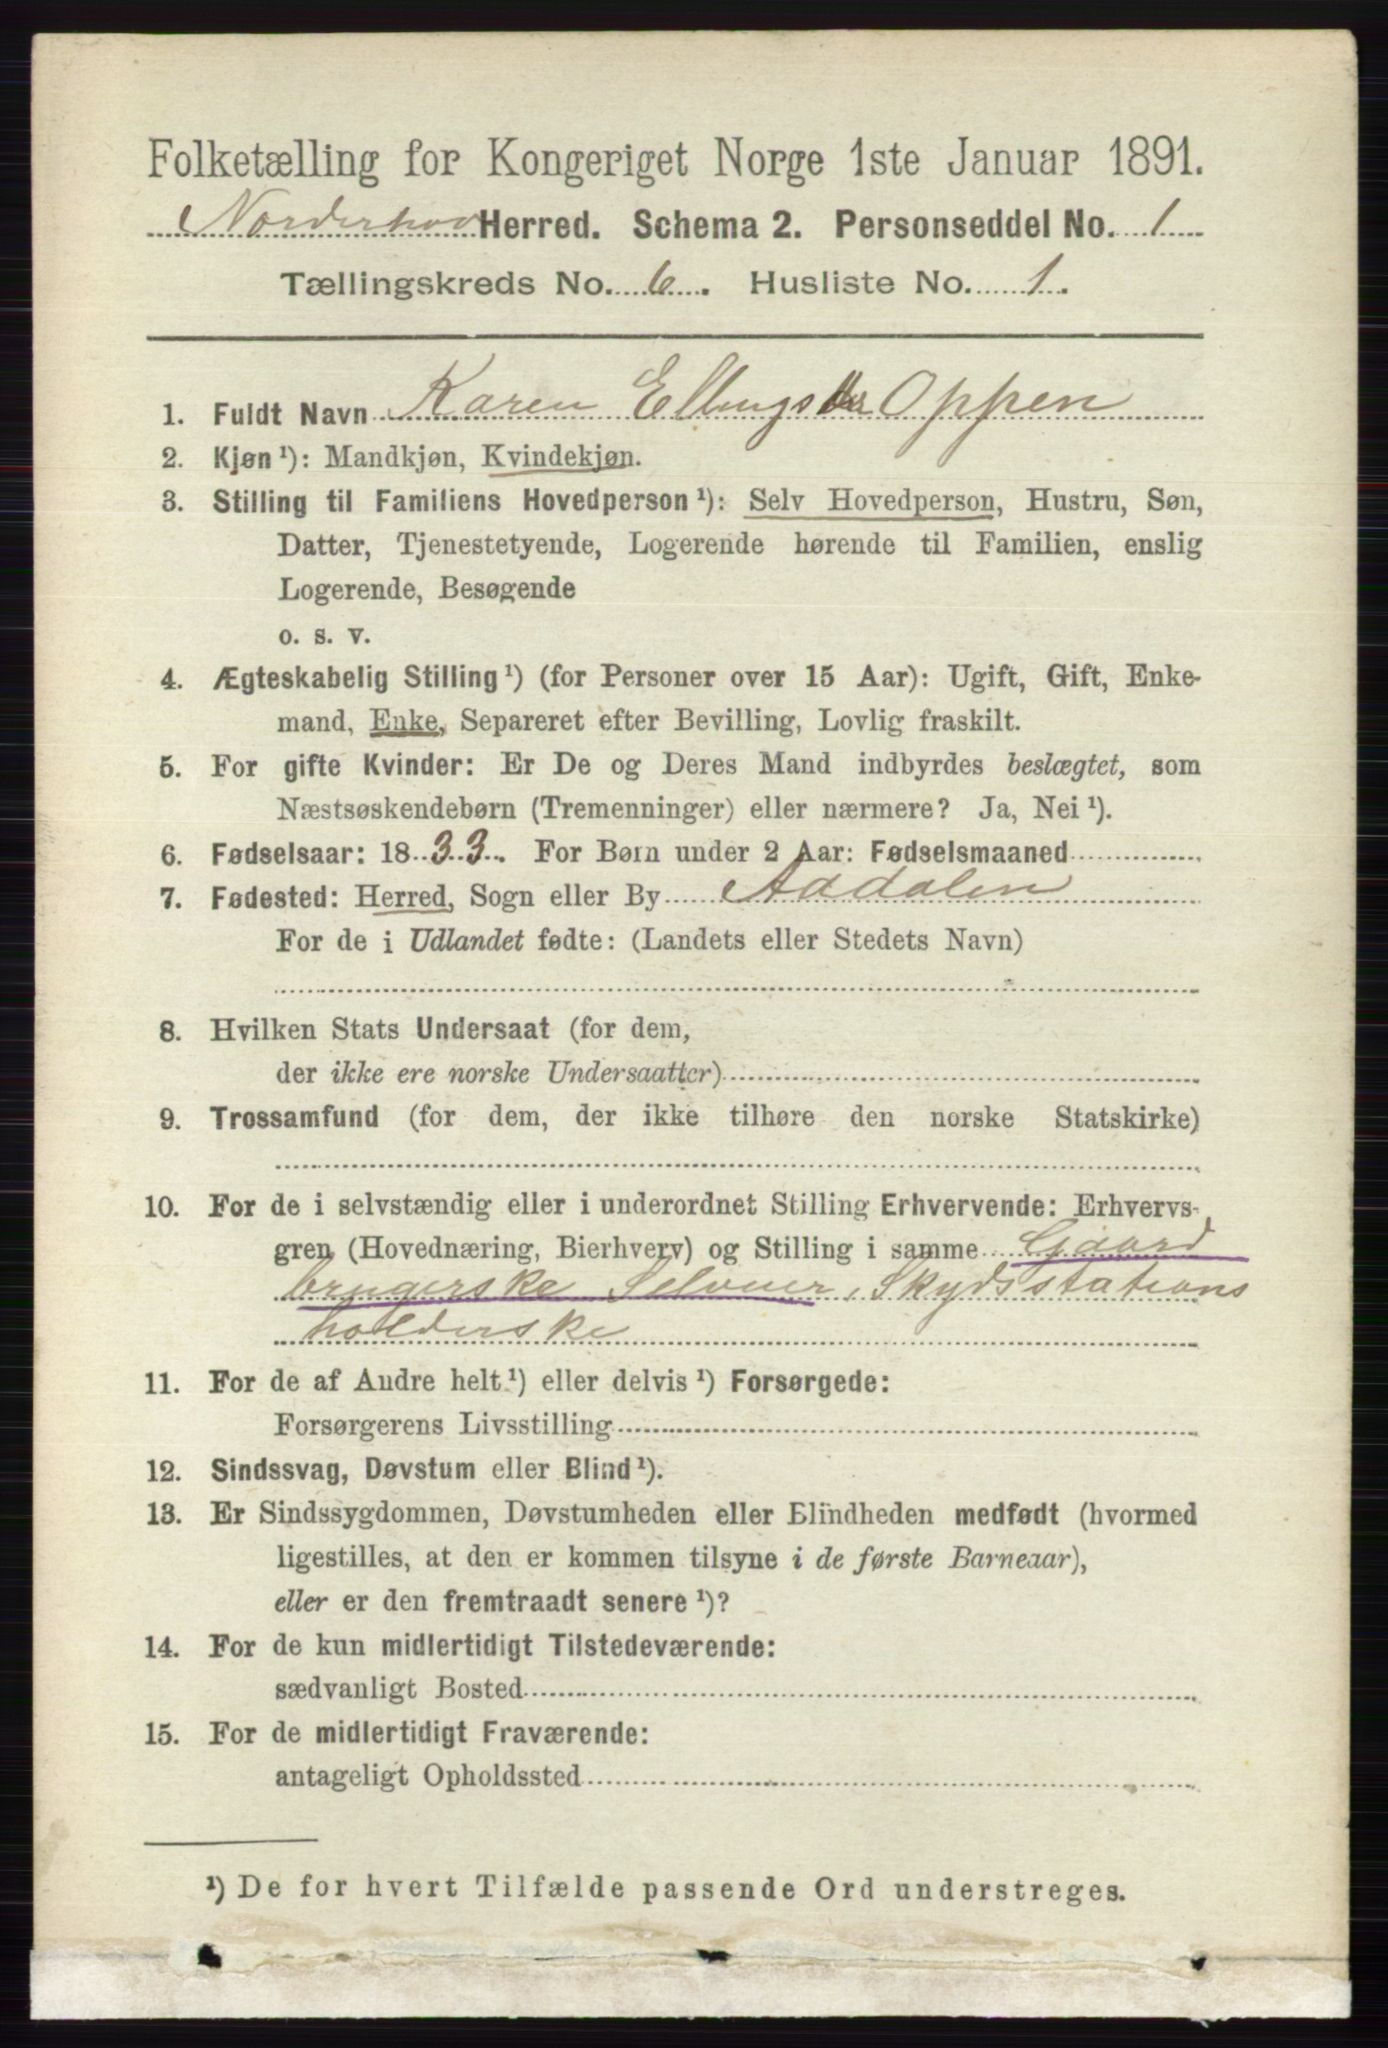 Folketælling for Kongeriget Norge 1ste Januar 1891.
Norderhov Herred. Schema 2. Personseddel No. 1
Tællingskreds No. 6. Husliste No. 1.
1. Fuldt Navn Karen Ellings Oppen
2. Kjøn ¹): Mandkjøn, Kvindekjøn.
3. Stilling til Familiens Hovedperson ¹): Selv Hovedperson, Hustru, Søn,
Datter, Tjenestetyende, Logerende hørende til Familien, enslig
Logerende, Besøgende
o. s. v.
4. Ægteskabelig Stilling ¹) (for Personer over 15 Aar): Ugift, Gift, Enke-
mand, Enke, Separeret efter Bevilling, Lovlig fraskilt.
5. For gifte Kvinder: Er De og Deres Mand indbyrdes beslægtet, som
Næstsøskendebørn (Tremenninger) eller nærmere? Ja, Nei ¹).
6. Fødselsaar: 1833. For Børn under 2 Aar: Fødselsmaaned
7. Fødested: Herred, Sogn eller By Aadalen
For de i Udlandet fødte: (Landets eller Stedets Navn)
8. Hvilken Stats Undersaat (for dem,
der ikke ere norske Undersaatter)
9. Trossamfund (for dem, der ikke tilhøre den norske Statskirke)
10. For de i selvstændig eller i underordnet Stilling Erhvervende: Erhvervs-
gren (Hovednæring, Bierhverv) og Stilling i samme Gaard
brugerske Selveier, Skydsstations
holderske
11. For de af Andre helt ¹) eller delvis ¹) Forsørgede:
Forsørgerens Livsstilling
12. Sindssvag, Døvstum eller Blind ¹).
13. Er Sindssygdommen, Døvstumheden eller Blindheden medfødt (hvormed
ligestilles, at den er kommen tilsyne i de første Barneaar),
eller er den fremtraadt senere ¹)?
14. For de kun midlertidigt Tilstedeværende:
sædvanligt Bosted
15. For de midlertidigt Fraværende:
antageligt Opholdssted
¹) De for hvert Tilfælde passende Ord understreges.